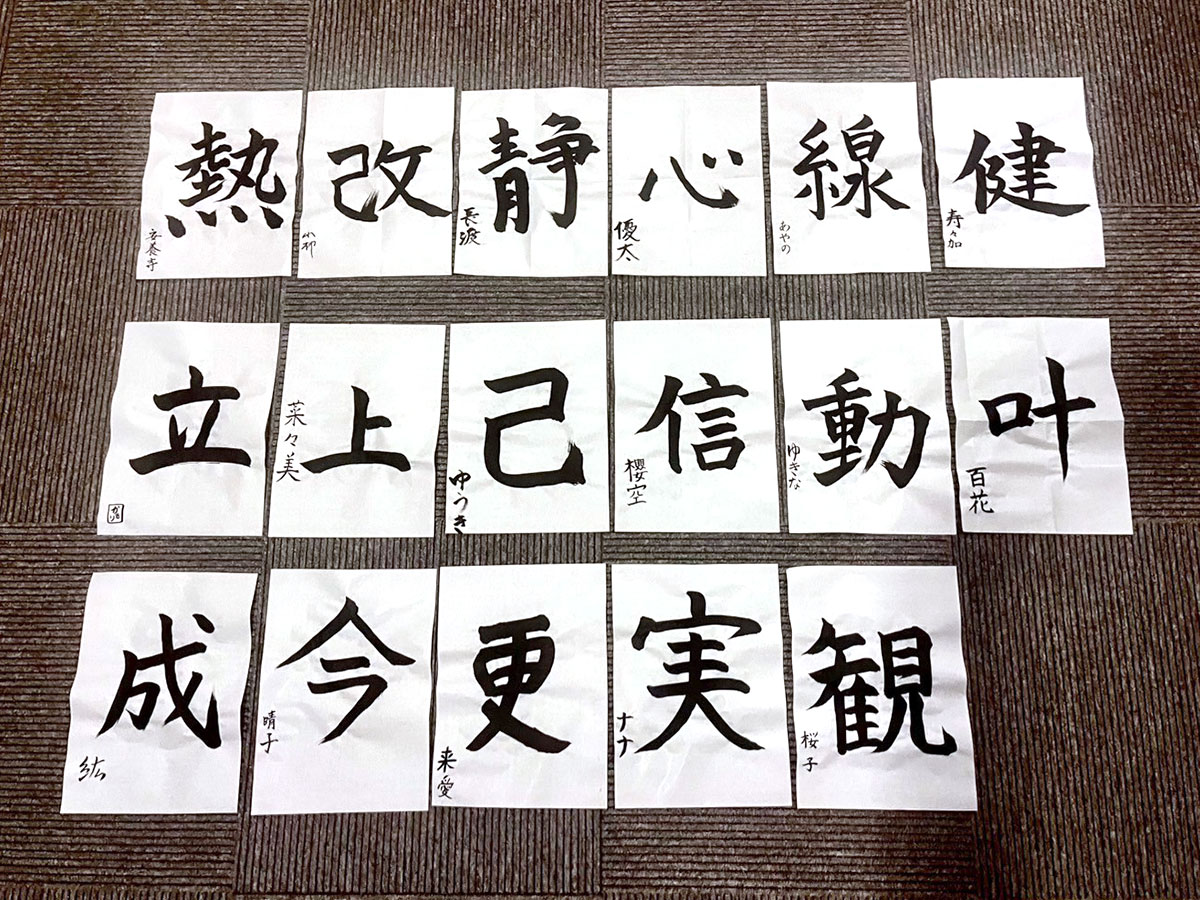 熱
安養寺
改
小柳
静
長渡
心
優太
線
あやの
健
寿々加
立
上
菜々美
己
ゆうき
信
櫻空
動
ゆきな
叶
百花
成
紘
今
晴子
更
来愛
実
ナナ
観
桜子